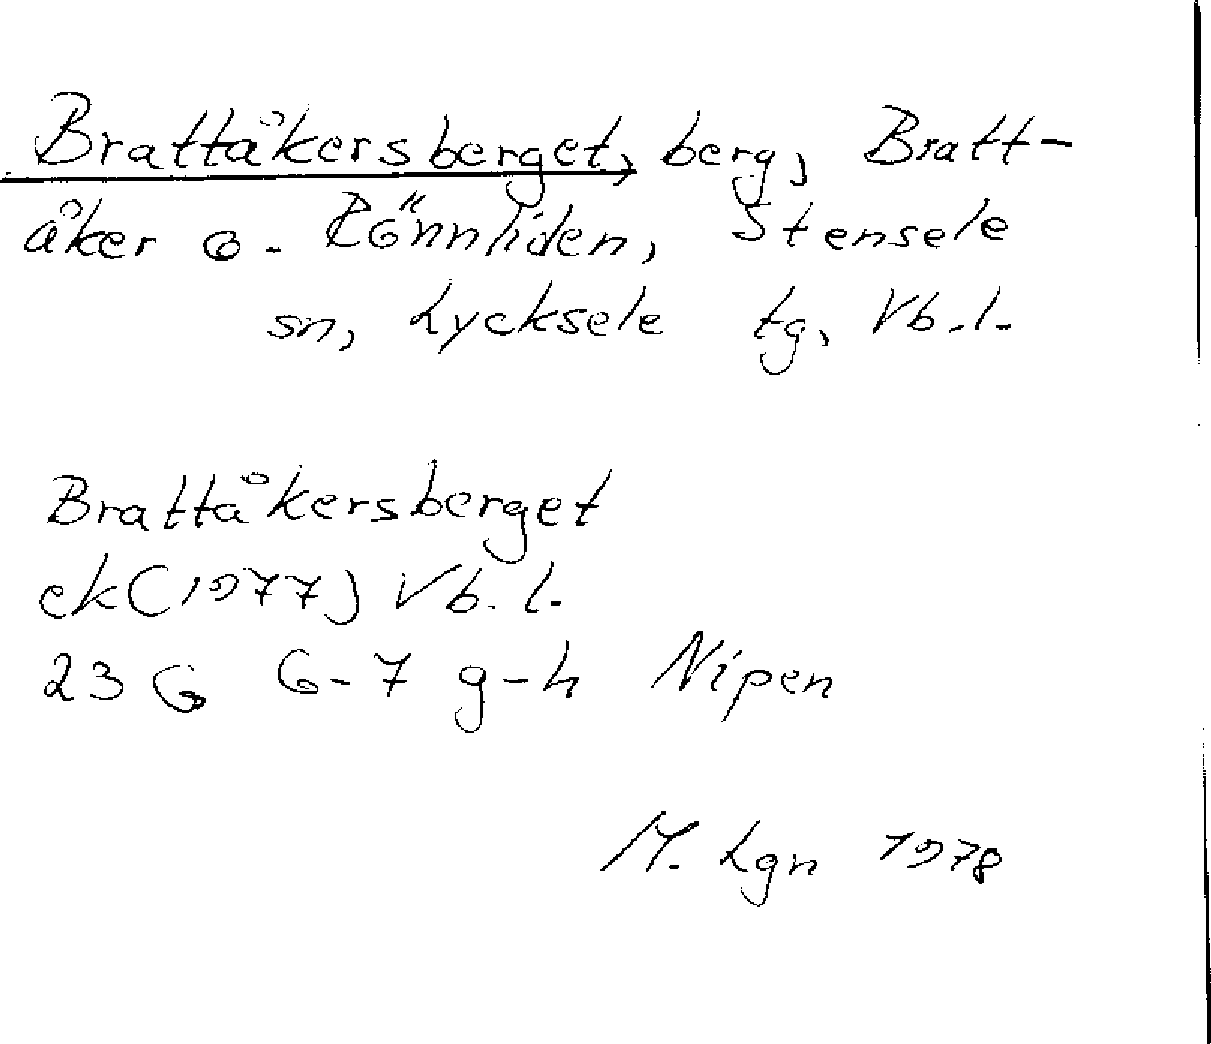 Brattåkersberget, berg, Bratt-
åker o. Rönnliden, Stensele
sn, Lycksele tg, Vb.l.
Brattåkersberget
ek (1977) Vb.l.
23 G 6-7 g-h Nipen
M. Lgn 1978